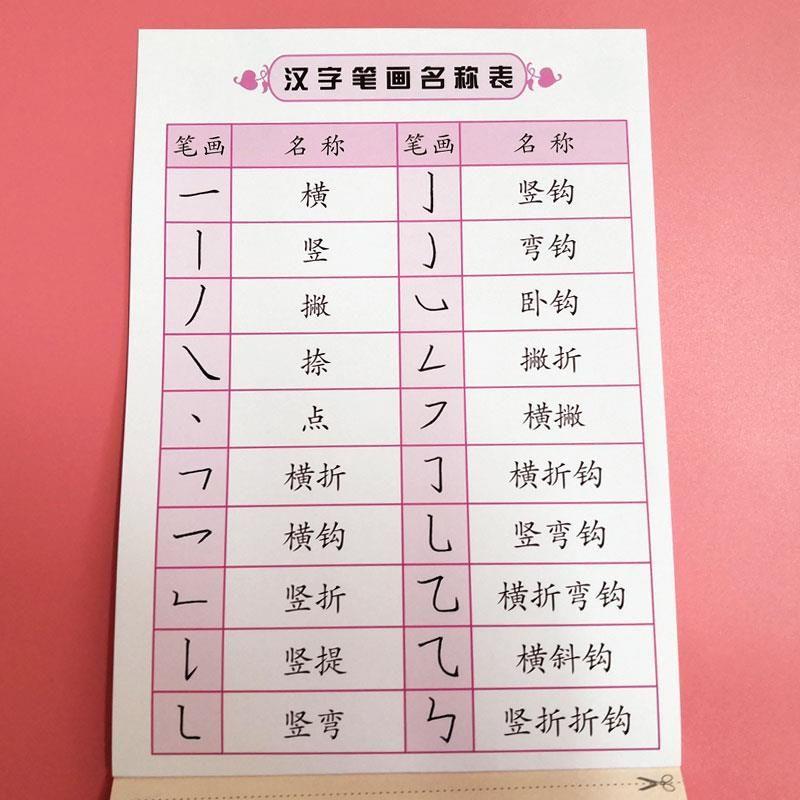 汉字笔画名称表
笔画 名称 笔画 名称
㇐ 横 亅 竖钩
丨 竖 ㇁ 弯钩
丿 撇 ㇃ 卧钩
㇏ 捺 ㇜ 撇折
丶 点 ㇇ 横撇
㇕ 横折 ㇆ 横折钩
㇖ 横钩 乚 竖弯钩
㇗ 竖折 乙 横折弯钩
㇙ 竖提 ⺄ 横斜钩
㇄ 竖弯 ㇉ 竖折折钩